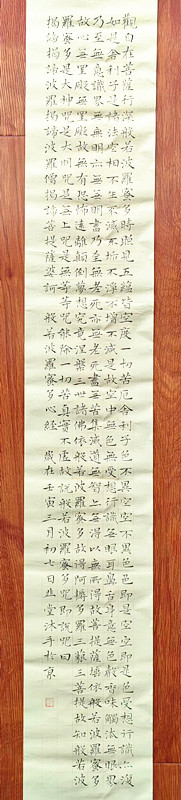 觀自在菩薩行深般若波羅蜜多時照見五蘊皆空度一切苦厄舍利子色不異空空不異色色即是空空即是色受想行識亦復
如是舍利子是諸法空相不生不滅不垢不淨不增不減是故空中無色無受想行識無眼耳鼻舌身意無色聲香味觸法無眼界
乃至無意識界無無明亦無無明盡乃至無老死亦無老死盡無苦集滅道無智亦無得以無所得故菩提薩埵依般若波羅蜜多
故心無罣礙無罣礙故無有恐怖遠離顛倒夢想究竟涅槃三世諸佛依般若波羅蜜多故得阿耨多羅三藐三菩提故知般若波
羅蜜多是大神咒是大明咒是無上咒是無等等咒能除一切苦真實不虛故說般若波羅蜜多咒即說咒曰
揭諦揭諦波羅揭諦波羅僧揭諦菩提薩婆訶 般若波羅蜜多心經 歲在壬寅三月初七日止堂沐手於京